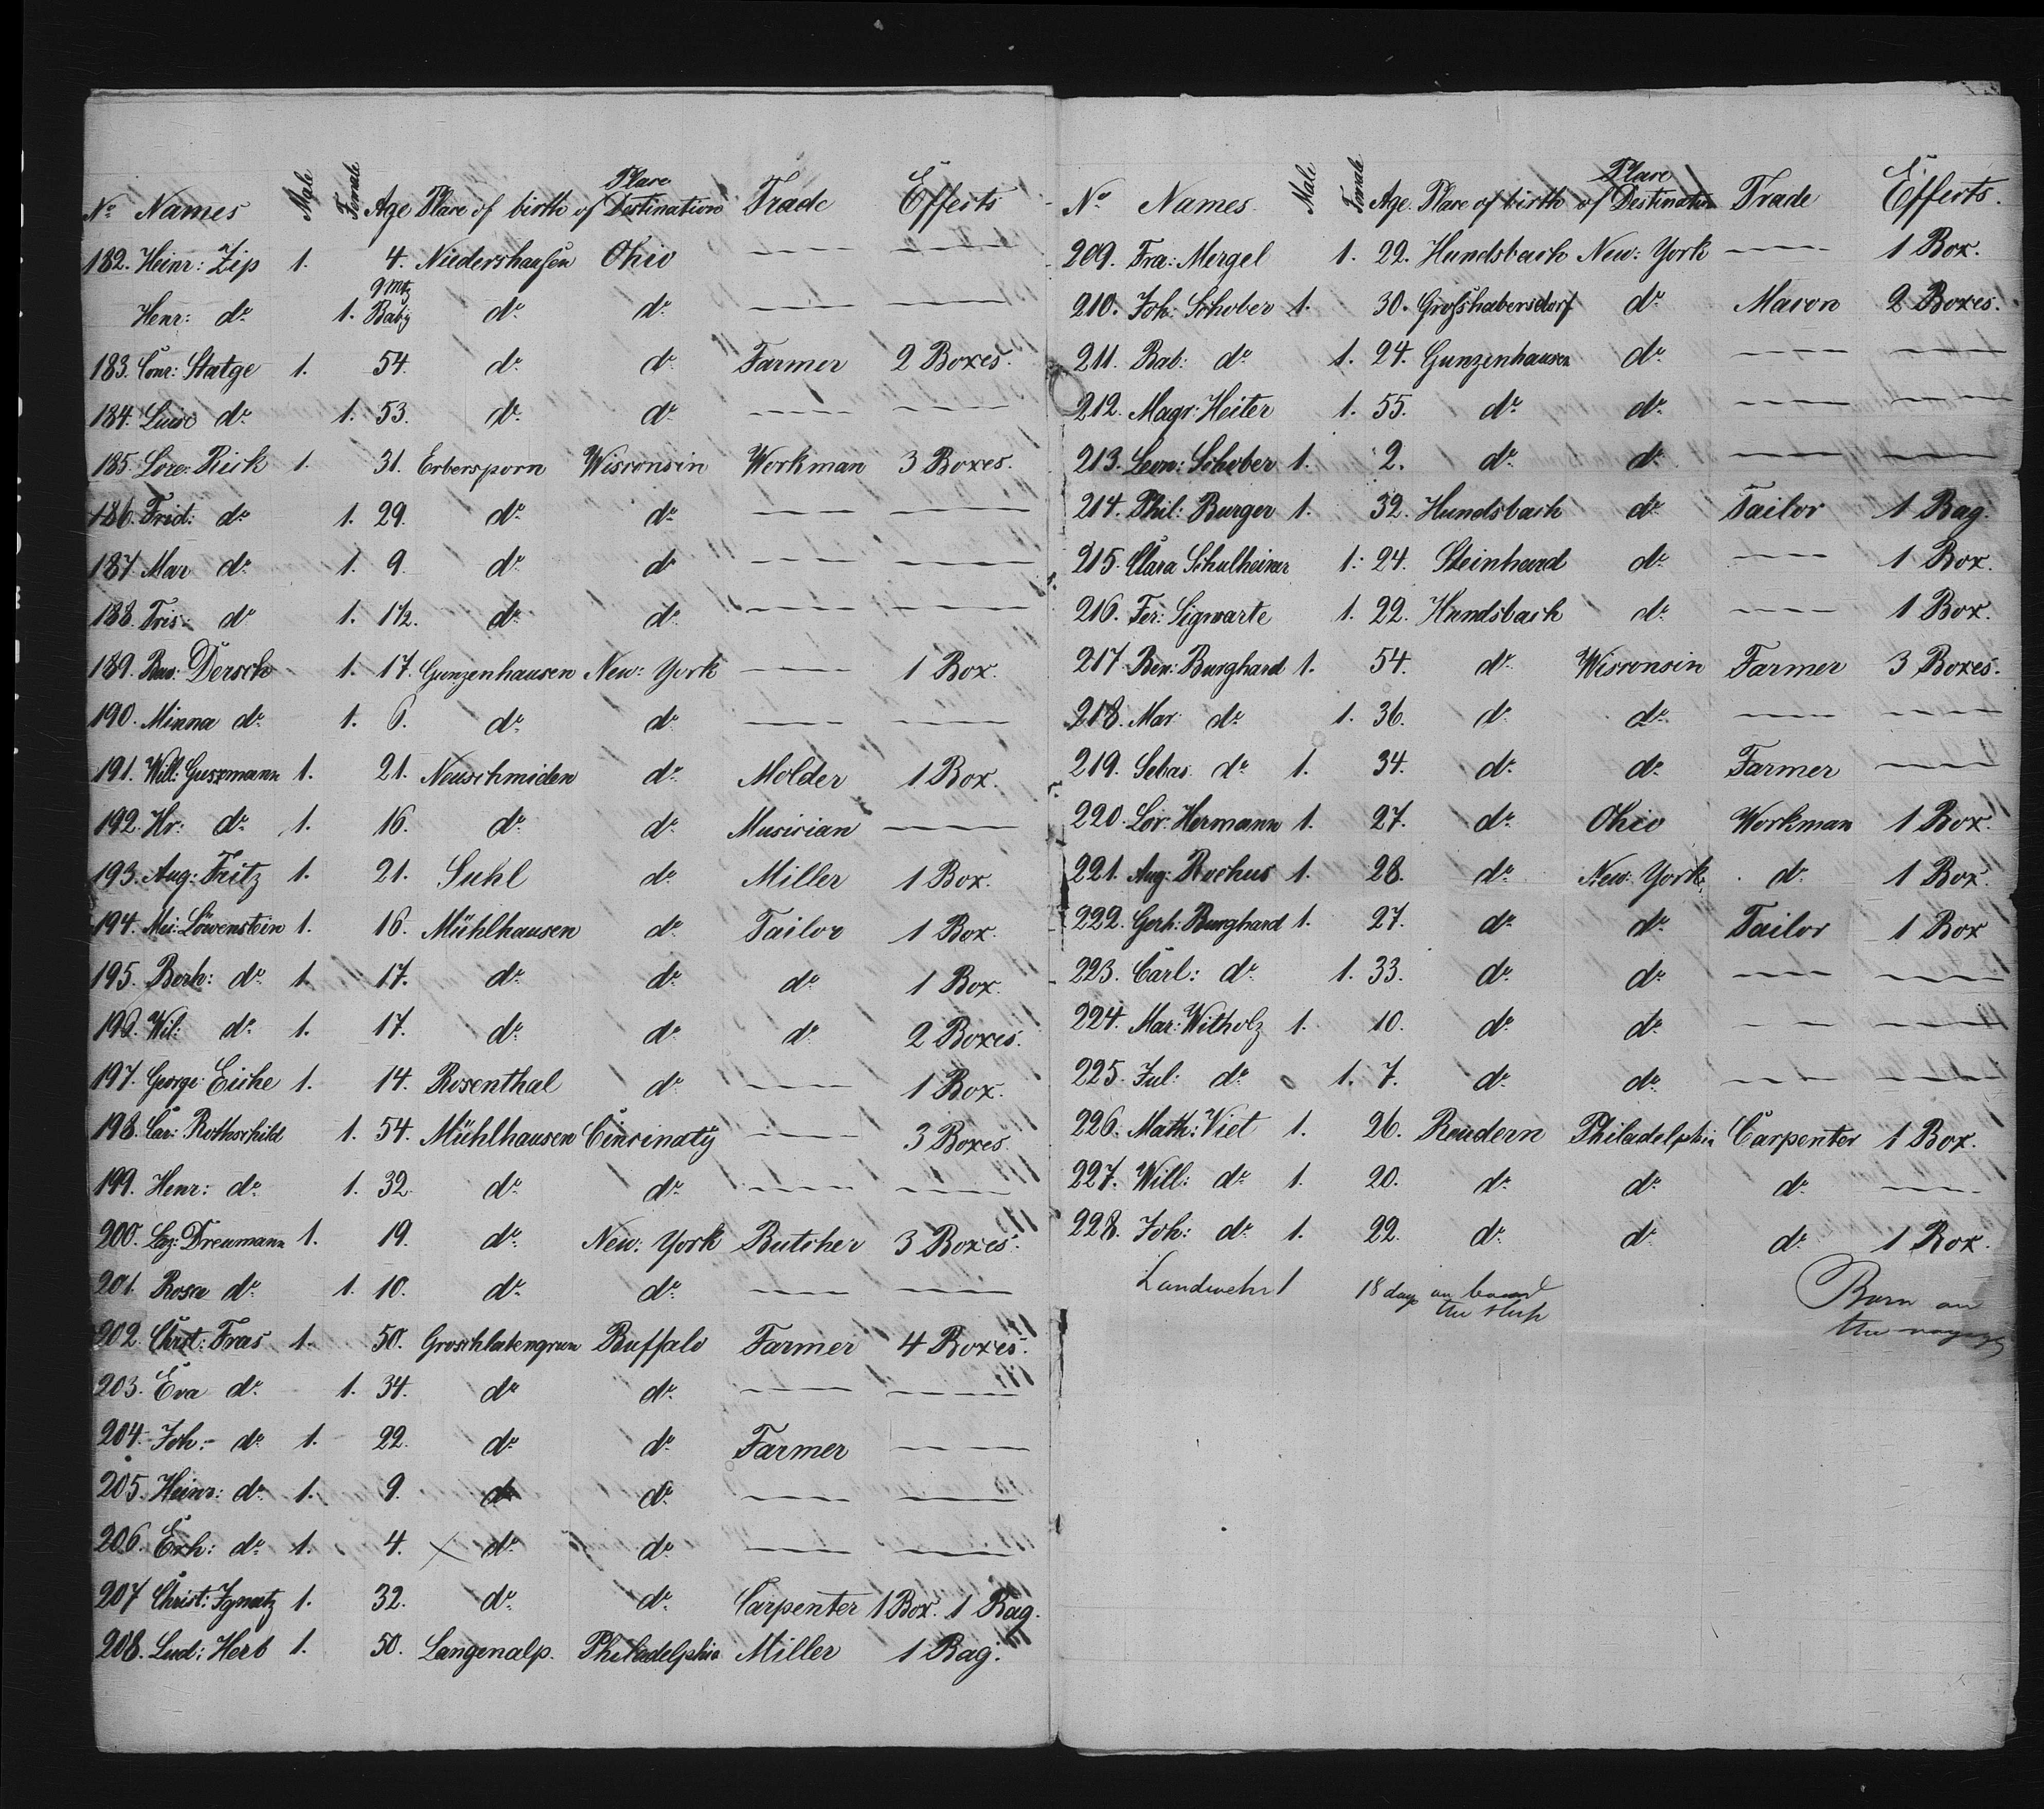 No Names Male Female Age Place of birth Place of Destination Trade Effects
182. Heinr: Zip 1. 4. Niedershausen Ohio — —
Henr: do 1. 9 mts Baby do do — —
183. Conr: Statge 1. 54. do do Farmer 2 Boxes.
184. Luise do 1. 53. do do — —
185. Lore: Rick 1. 31. Erbersporn Wisconsin Workman 3 Boxes.
186. Frid: do 1. 29. do do — —
187 Mar do 1. 9. do do — —
188. Fris: do 1. 1 1/2. do do — —
189. Bar: Dersch 1. 17. Gunzenhausen New: York — 1 Box.
190. Minna do 1. 6. do do — —
191. Will: Gussmann 1. 21. Neuschmiden do Molder 1 Box.
192. Hr: do 1. 16. do do Musician —
193. Aug: Fritz 1. 21. Suhl do Miller 1 Box.
194. Mei: Löwenstein 1. 16. Mühlhausen do Tailor 1 Box.
195. Berh: do 1. 17. do do do 1 Box.
196. Wil: do 1. 17. do do do 2 Boxes.
197. George: Eiche 1. 14. Rosenthal do — 1 Box.
198. Car: Rothschild 1. 54. Mühlhausen Cincinaty — 3 Boxes.
199. Henr: do 1. 32. do do — —
200. Laz: Dreumann 1. 19. do New: York Butcher 3 Boxes.
201. Rosa do 1. 10. do do — —
202. Christ: Fras 1. 50. Groschlatengrun Buffalo Farmer 4 Boxes.
203. Eva do 1. 34. do do — —
204. Joh: do 1. 22. do do Farmer —
205. Heinr: do 1. 9. do do — —
206. Erh: do 1. 4. x do do — —
207 Christ: Ignatz 1. 32. do do Carpenter 1 Box. 1 Bag.
208. Lud: Herb 1. 50. Langenalp. Philadelphia Miller 1 Bag.
No Names. Male Female Age. Place of birth Place of Destination Trade Effects.
209. Fra: Mergel 1. 22. Hundsbach New: York — 1 Box.
210. Joh: Schober 1. 30. Grosshabersdorf do Mason 2 Boxes.
211. Bab: do 1. 24. Gunzenhausen do — —
212. Magr: Heiter 1. 55. do do — —
213. Leon: Schober 1. 2. do do — —
214. Phil: Burger 1. 32. Hundsbach do Tailor 1 Bag.
215. Clara Schulheiner 1. 24. Steinhard do — 1 Box.
216. Fer: Sigwarte 1. 22. Hundsbach do — 1 Box.
217. Ben: Burghard 1. 54. do Wisconsin Farmer 3 Boxes.
218. Mar do 1. 36. do do — —
219. Sebas. do 1. 34. do do Farmer —
220. Lor: Hermann 1. 27. do Ohio Workman 1 Box.
221. Aug: Rochus 1. 28. do New: York. do 1 Box.
222. Gerh: Burghard 1. 27. do do Tailor 1 Box
223. Carl: do 1. 33. do do — —
224. Mar: Witholz 1. 10. do do — —
225. Jul: do 1. 7. do do — —
226. Math: Viet 1. 26. Reudern Philadelphia Carpenter 1 Box.
227. Will: do 1. 20. do do do —
228. Joh: do 1. 22. do do do 1 Box.
Landwehr 1 18 days on board the ship Born on the voyage